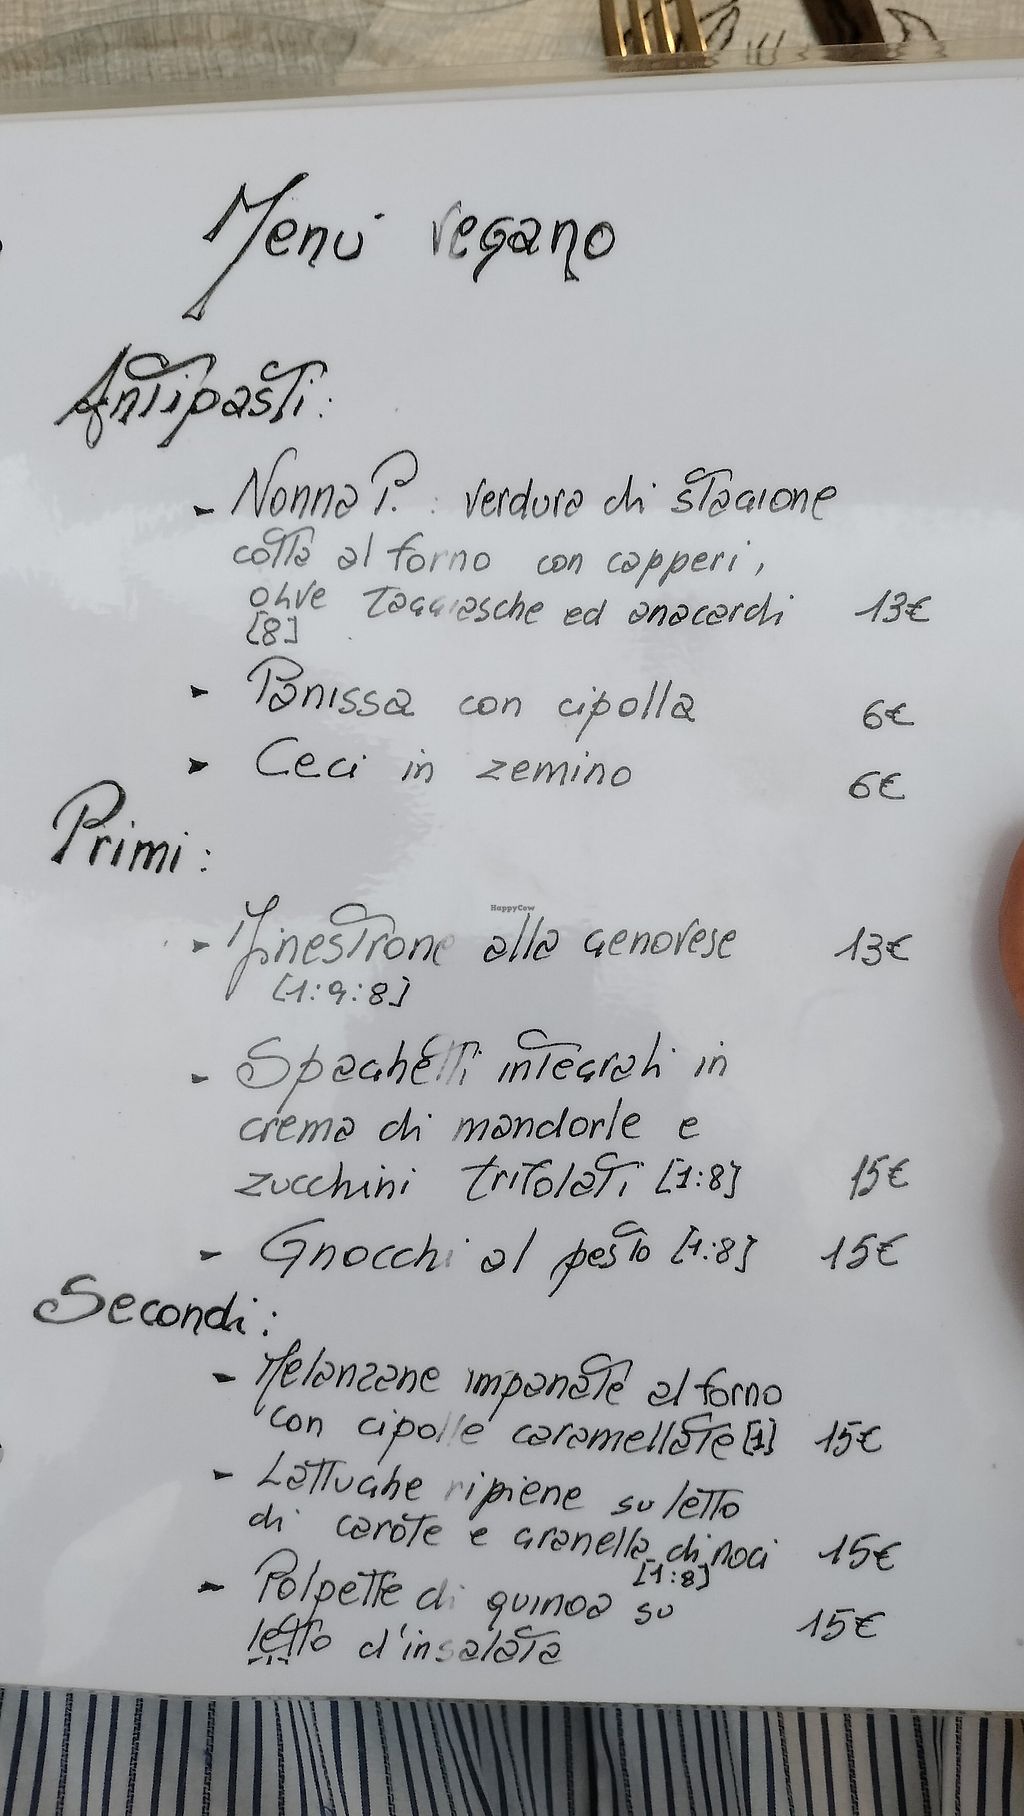 Menù vegano
Antipasti:
- Nonna P. : verdura di stagione
cotta al forno con capperi,
olive Taggiasche ed anacardi 13€
[8]
- Panissa con cipolla 6€
- Ceci in zemino 6€
Primi:
HappyCow
- Minestrone alla genovese 13€
[1:9:8]
- Spaghetti integrali in
crema di mandorle e
zucchini trifolati [1:8] 15€
- Gnocchi al pesto [1:8] 15€
Secondi:
- Melanzane impanate al forno
con cipolle caramellate [1] 15€
- Lattughe ripiene su letto
di carote e granella di noci 15€
[1:8]
- Polpette di quinoa su
letto d'insalata 15€